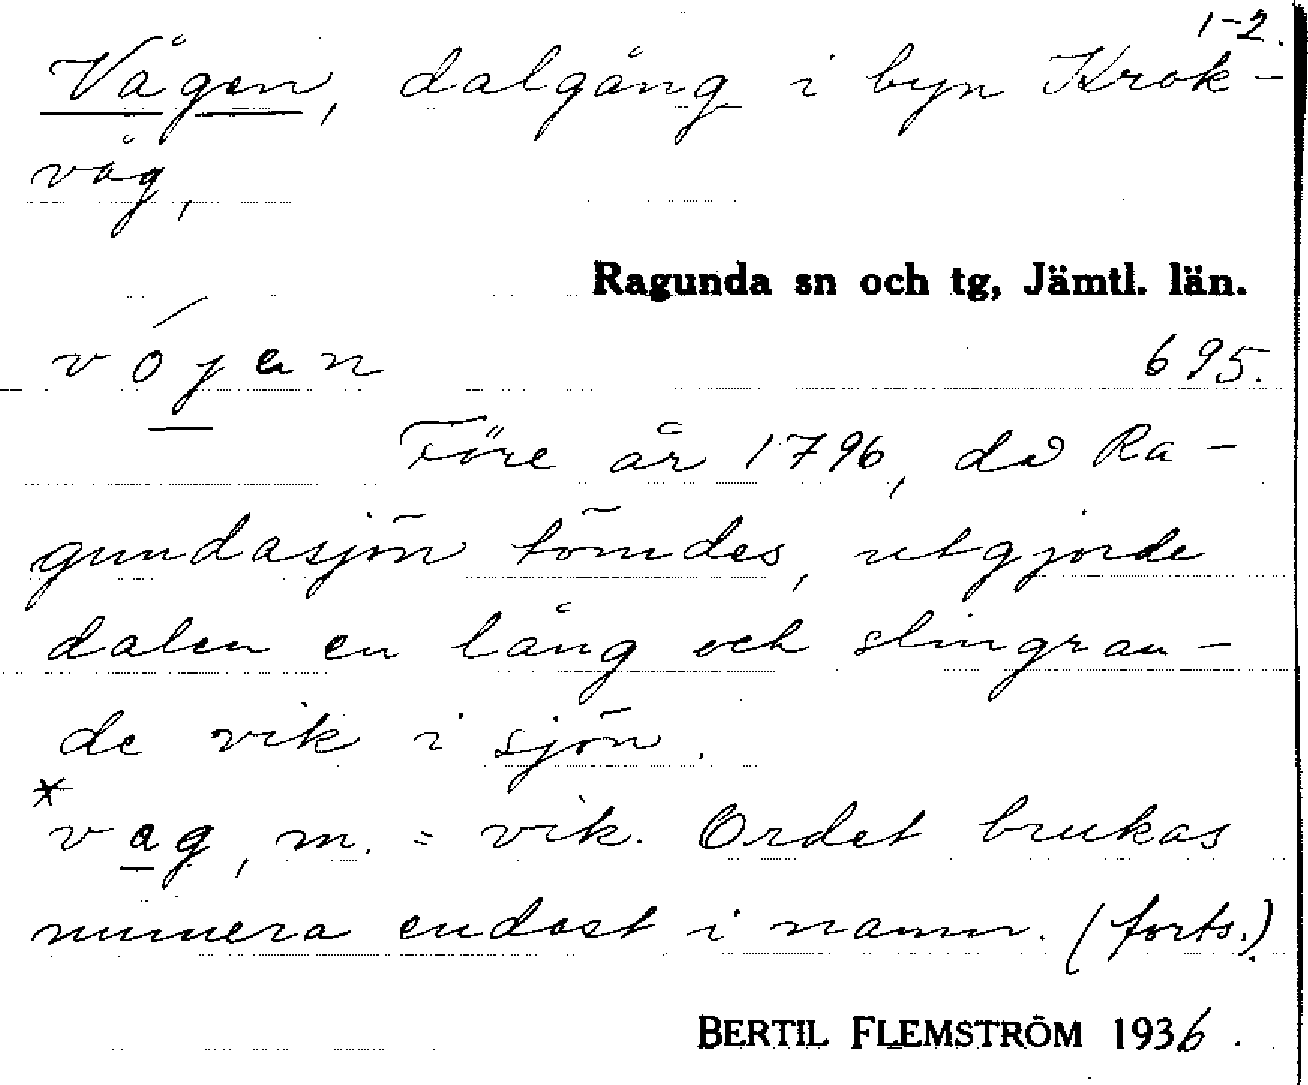 1-2.
Vågen, dalgång i byn Krok-
våg,
Ragunda sn och tg, Jämtl. län.
vójen 695.
Före år 1796, då Ra-
gundasjön tömdes, utgjorde
dalen en lång och slingran-
de vik i sjön.
*
vag, m. = vik. Ordet brukas
numera endast i namn. (forts.)
BERTIL FLEMSTRÖM 1936.